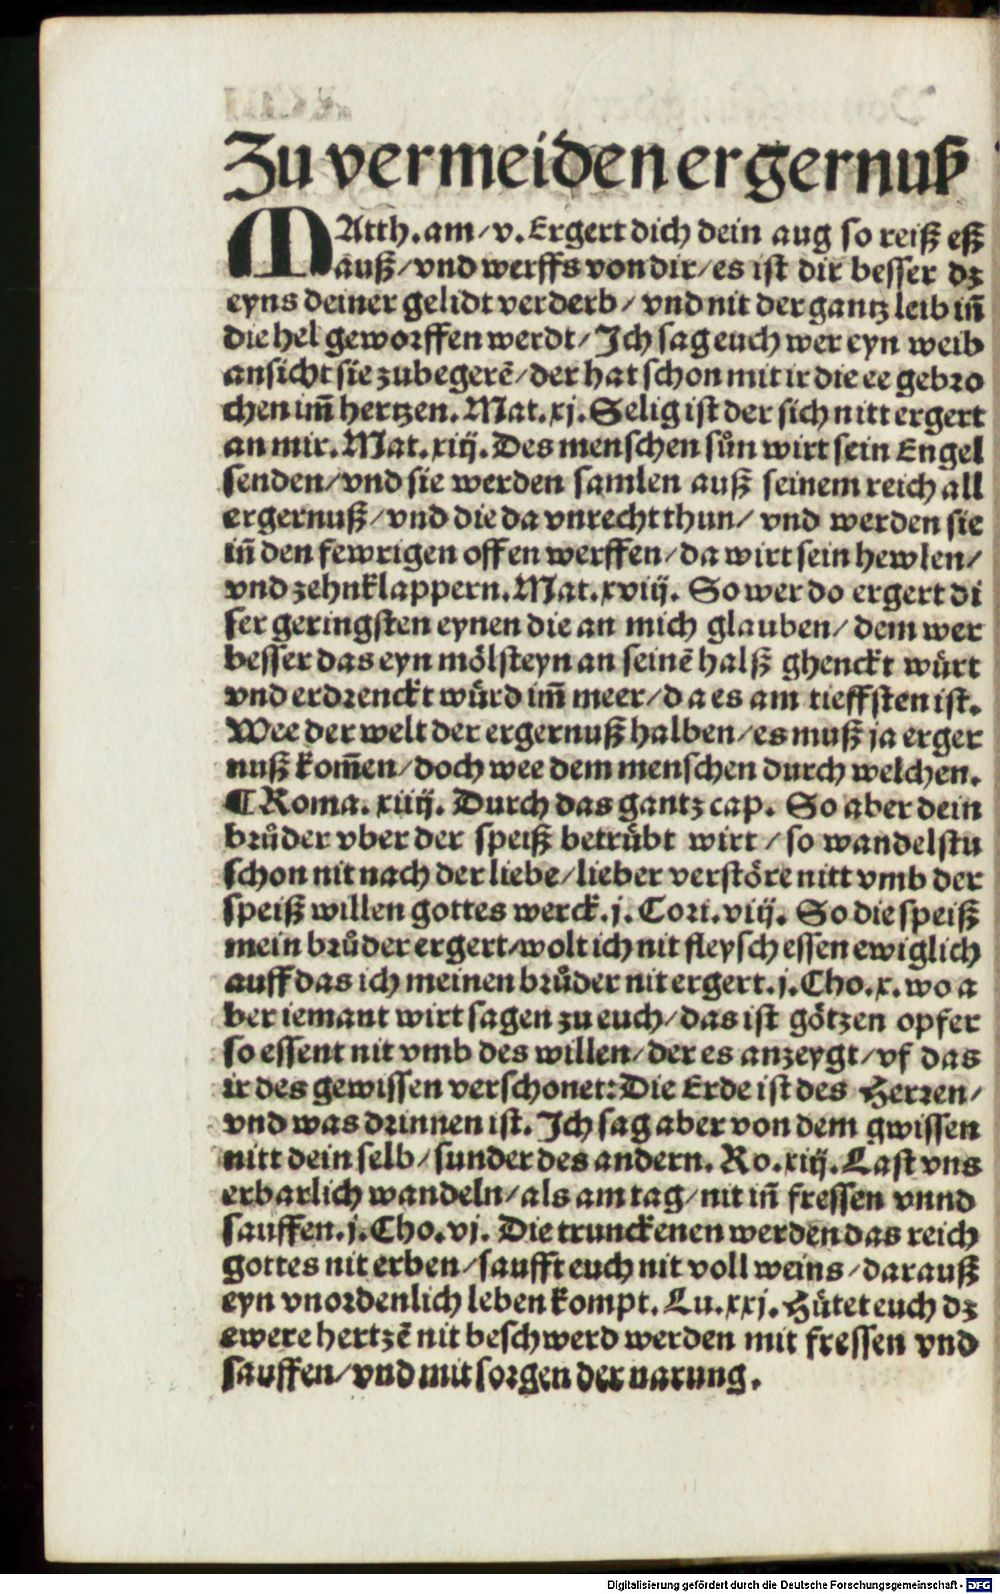 Zu vermeiden ergernuß
MAtth.am/v. Ergert dich dein aug so reiß eß
auß/vnd werffs von dir/es ist dir besser dz
eyns deiner gelidt verderb/ vnd nit der gantz leib in̄
die hel geworffen werdt/ Ich sag euch wer eyn weib
ansicht sie zubegerē/der hat schon mit ir die ee gebro
chen im̄ hertzen. Mat.xj. Selig ist der sich nitt ergert
an mir. Mat.xiij. Des menschen sůn wirt sein Engel
senden/vnd sie werden samlen auß seinem reich all
ergernuß/vnd die da vnrecht thun/ vnd werden sie
in̄ den fewrigen offen werffen/da wirt sein hewlen/
vnd zehnklappern. Mat.xviij. So wer do ergert di
ser geringsten eynen die an mich glauben/ dem wer
besser das eyn mölsteyn an seinē halß ghenckt würt
vnd erdrenckt würd im̄ meer/da es am tieffsten ist.
Wee der welt der ergernuß halben/es muß ja erger
nuß kom̄en/doch wee dem menschen durch welchen.
¶ Roma. xiiij. Durch das gantz cap. So aber dein
brůder vber der speiß betrübt wirt/so wandelstu
schon nit nach der liebe/lieber verstöre nitt vmb der
speiß willen gottes werck. j. Cori. viij. So die speiß
mein brůder ergert/wolt ich nit fleysch essen ewiglich
auff das ich meinen brůder nit ergert. j. Cho. x. wo a
ber iemant wirt sagen zu euch/das ist götzen opfer
so essent nit vmb des willen/der es anzeygt/vf das
ir des gewissen verschonet: Die Erde ist des Herren/
vnd was drinnen ist. Ich sag aber von dem gwissen
nitt dein selb/sunder des andern. Ro.xiij. Last vns
erbarlich wandeln/als am tag/nit in̄ fressen vnnd
sauffen. j. Cho. vj. Die trunckenen werden das reich
gottes nit erben/saufft euch nit voll weins/darauß
eyn vnordenlich leben kompt. Lu. xxj. Hütet euch dz
ewere hertzē nit beschwerd werden mit fressen vnd
sauffen/vnd mit sorgen der narung.
Digitalisierung gefördert durch die Deutsche Forschungsgemeinschaft - DFG